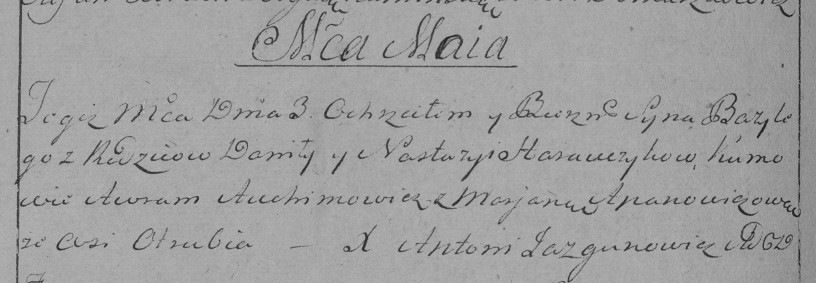 Mca Maia
Tegiż Mca Dnia 3. Ochrzciłem y Bierzm Syna Bazyle
go z Rodziców Daniły y Nastazyi Harawczyków, kumo
wie Awram Auchimowicz z Marjanną Apanowiczową
ze Wsi Otrubia — X Antoni Jazgunowicz